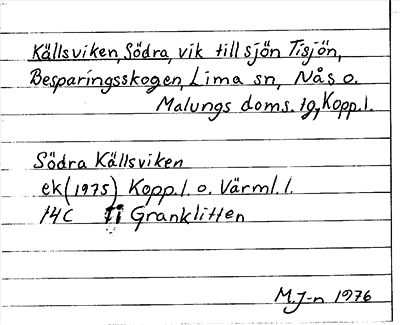 Källsviken, Södra, vik till sjön Tisjön,
Besparingsskogen, Lima sn, Nås o.
Malungs doms. lg, Kopp. l.
Södra Källsviken
ek (1975) Kopp. l. o. Värml. l.
14C Granklitten
M. J-n 1976